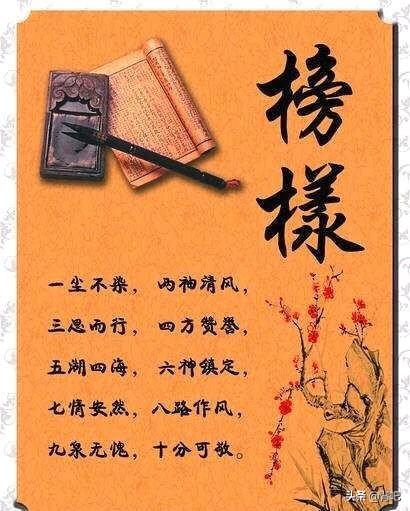 榜樣
一尘不染，两袖清风，
三思而行，四方赞誉，
五湖四海，六神镇定，
七情安然，八路作风，
九泉无愧，十分可敬。